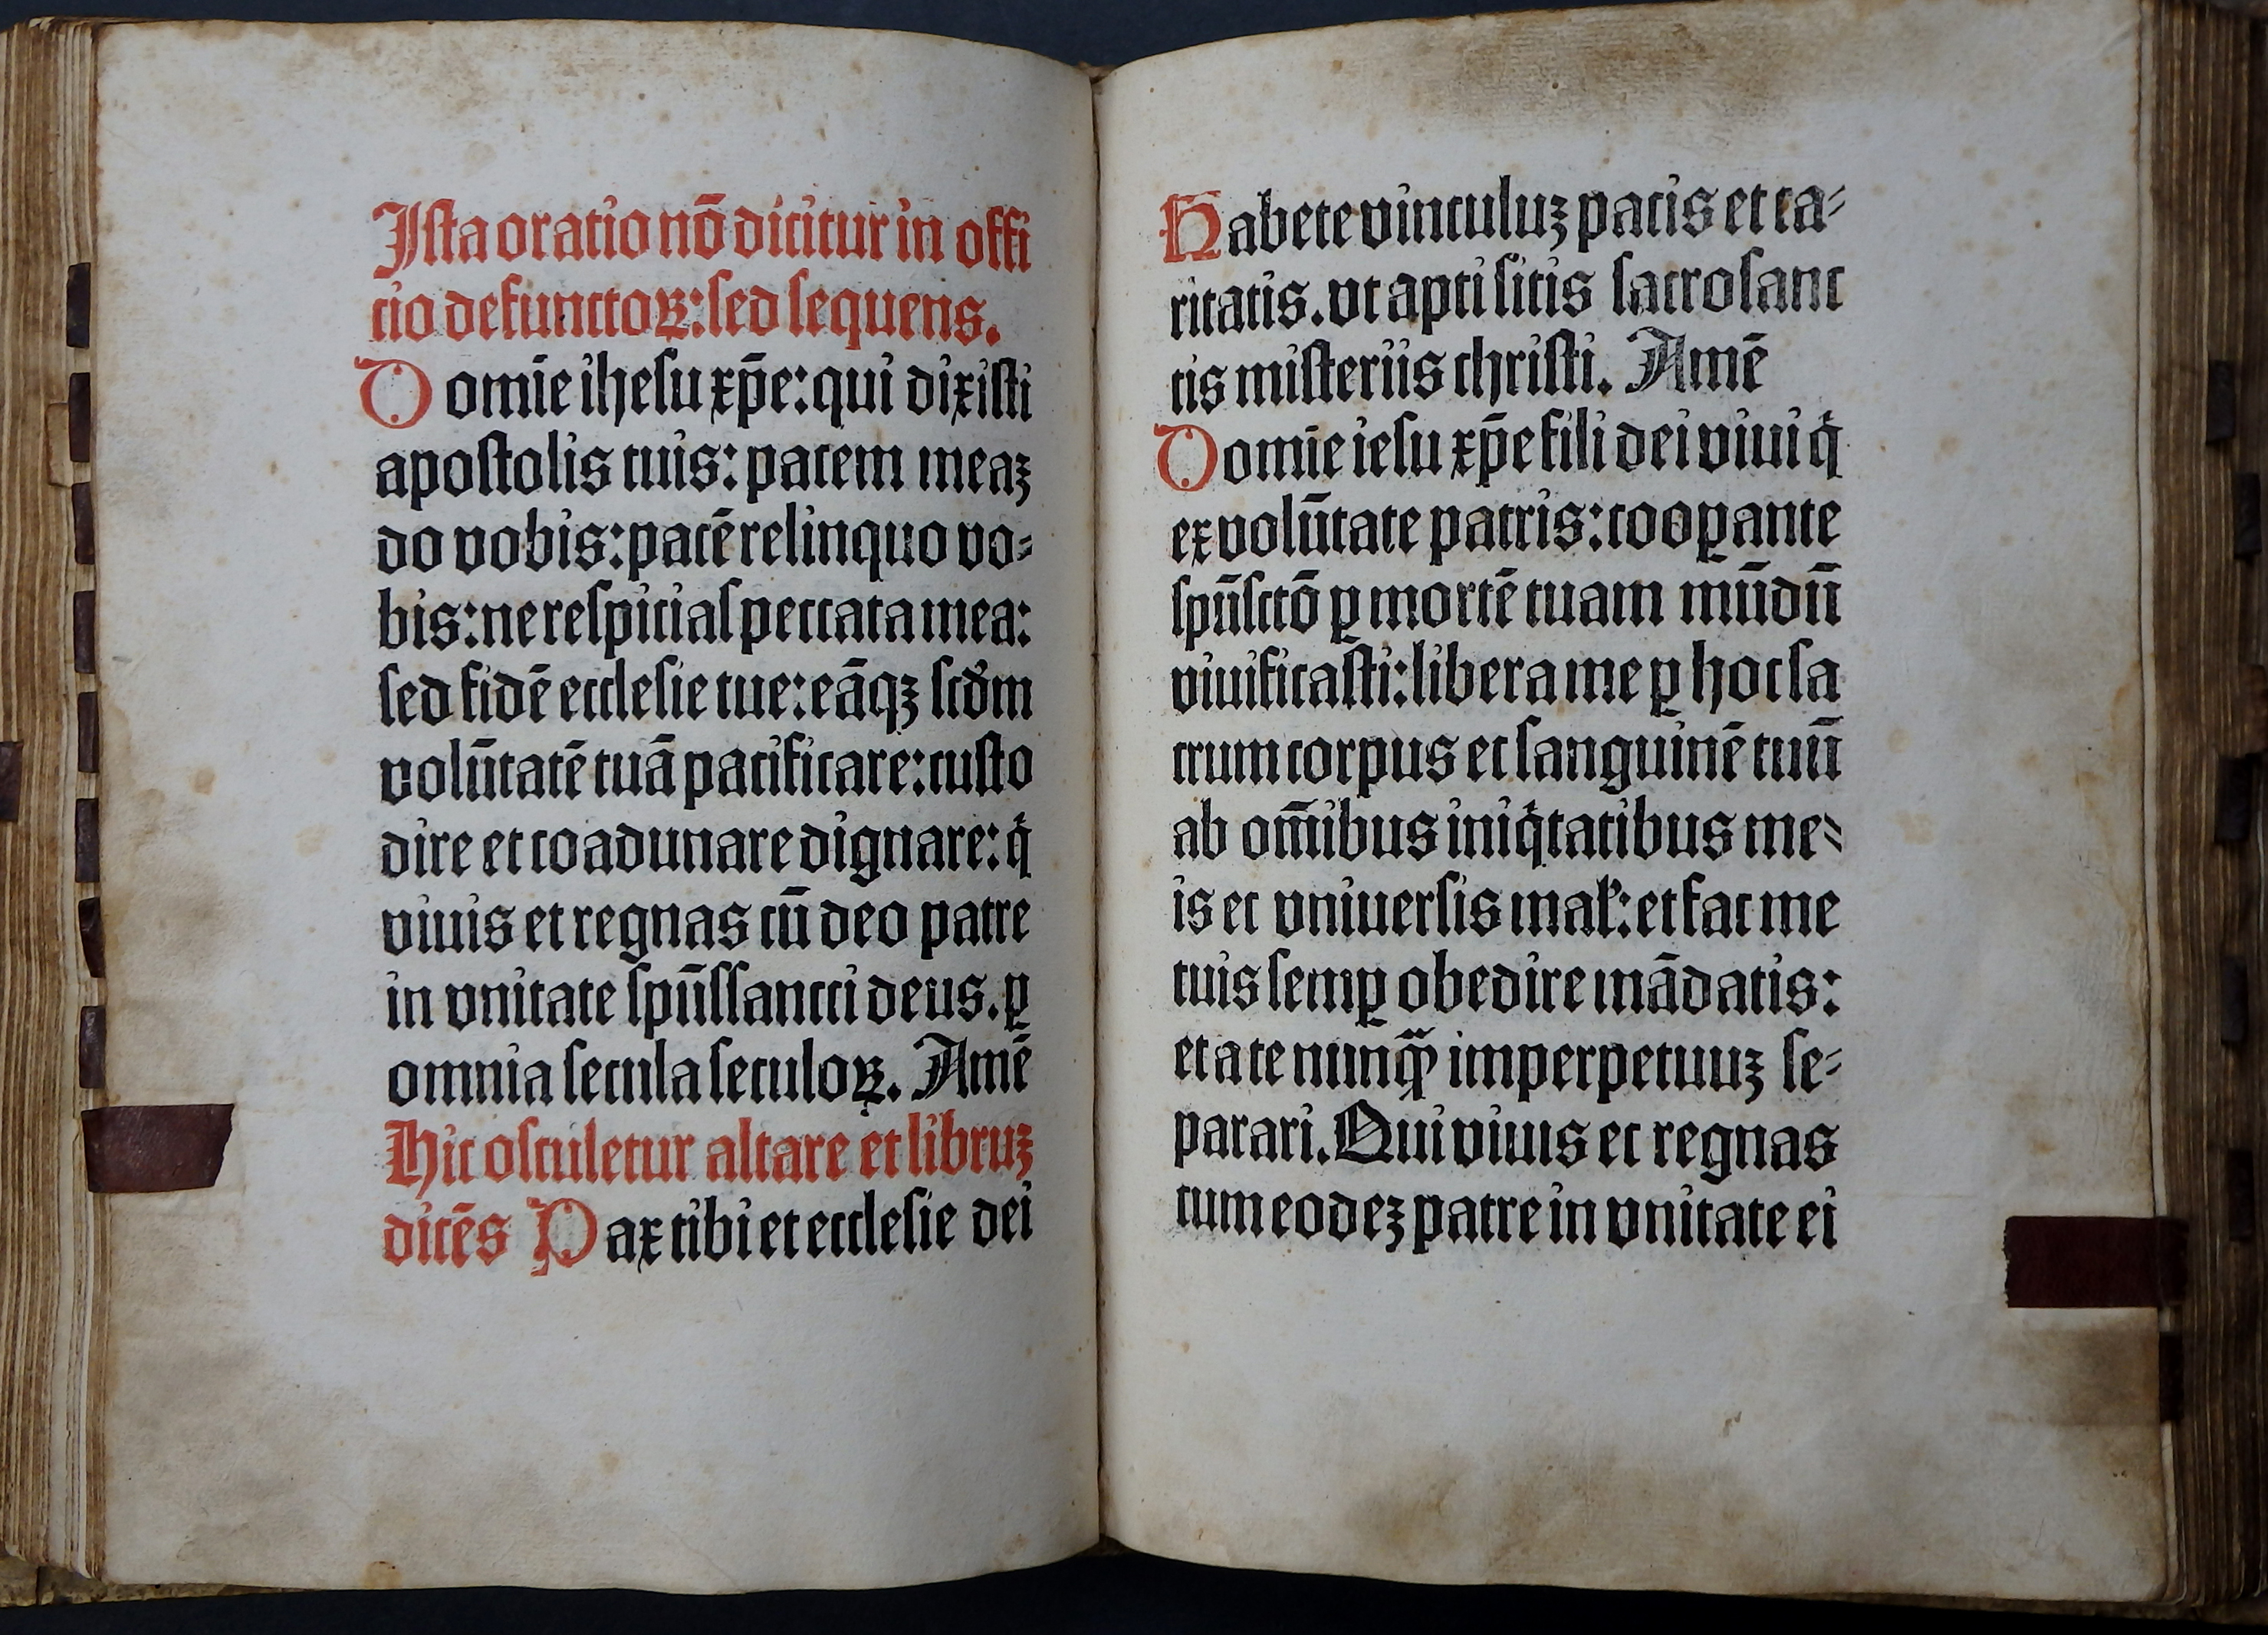 Iſta oratio nō dicitur in offi
cio defunctoꝝ: ſed ſequens.
Domīe iheſu xp̄e: qui dixiſti
apoſtolis tuis: pacem meaꝫ
do vobis: pacē relinquo vo⸗
bis: ne reſpiciaſ peccata mea:
ſed fidē eccleſie tue: eāqꝫ ſcd̓m
volūtatē tuā pacificare: cuſto
dire et coadunare dignare: qͥ
viuis et regnas cū deo patre
in vnitate ſpūſſancti deus. ꝑ
omnia ſecula ſeculoꝝ. Amē
Hic oſculetur altare et libruꝫ
dicēs Pax tibi et eccleſie dei
Habete vinculuꝫ pacis et ca⸗
ritatis. vt apti ſitis ſacroſanc
tis miſteriis chriſti. Amē
Domīe ieſu xp̄e fili dei viui qͥ
ex volūtate patris: cooꝑante
ſpūſctō ꝑ mortē tuam mūdū
viuificaſti: libera me ꝑ hoc ſa
crum corpus et ſanguinē tuū
ab om̄ibus iniqͥtatibus me⸗
is et vniuerſis mal̓: et fac me
tuis ſemꝑ obedire mādatis:
et a te nunqᷓꝫ imperpetuuꝫ ſe⸗
parari. Qui viuis et regnas
cum eodeꝫ patre in vnitate ei